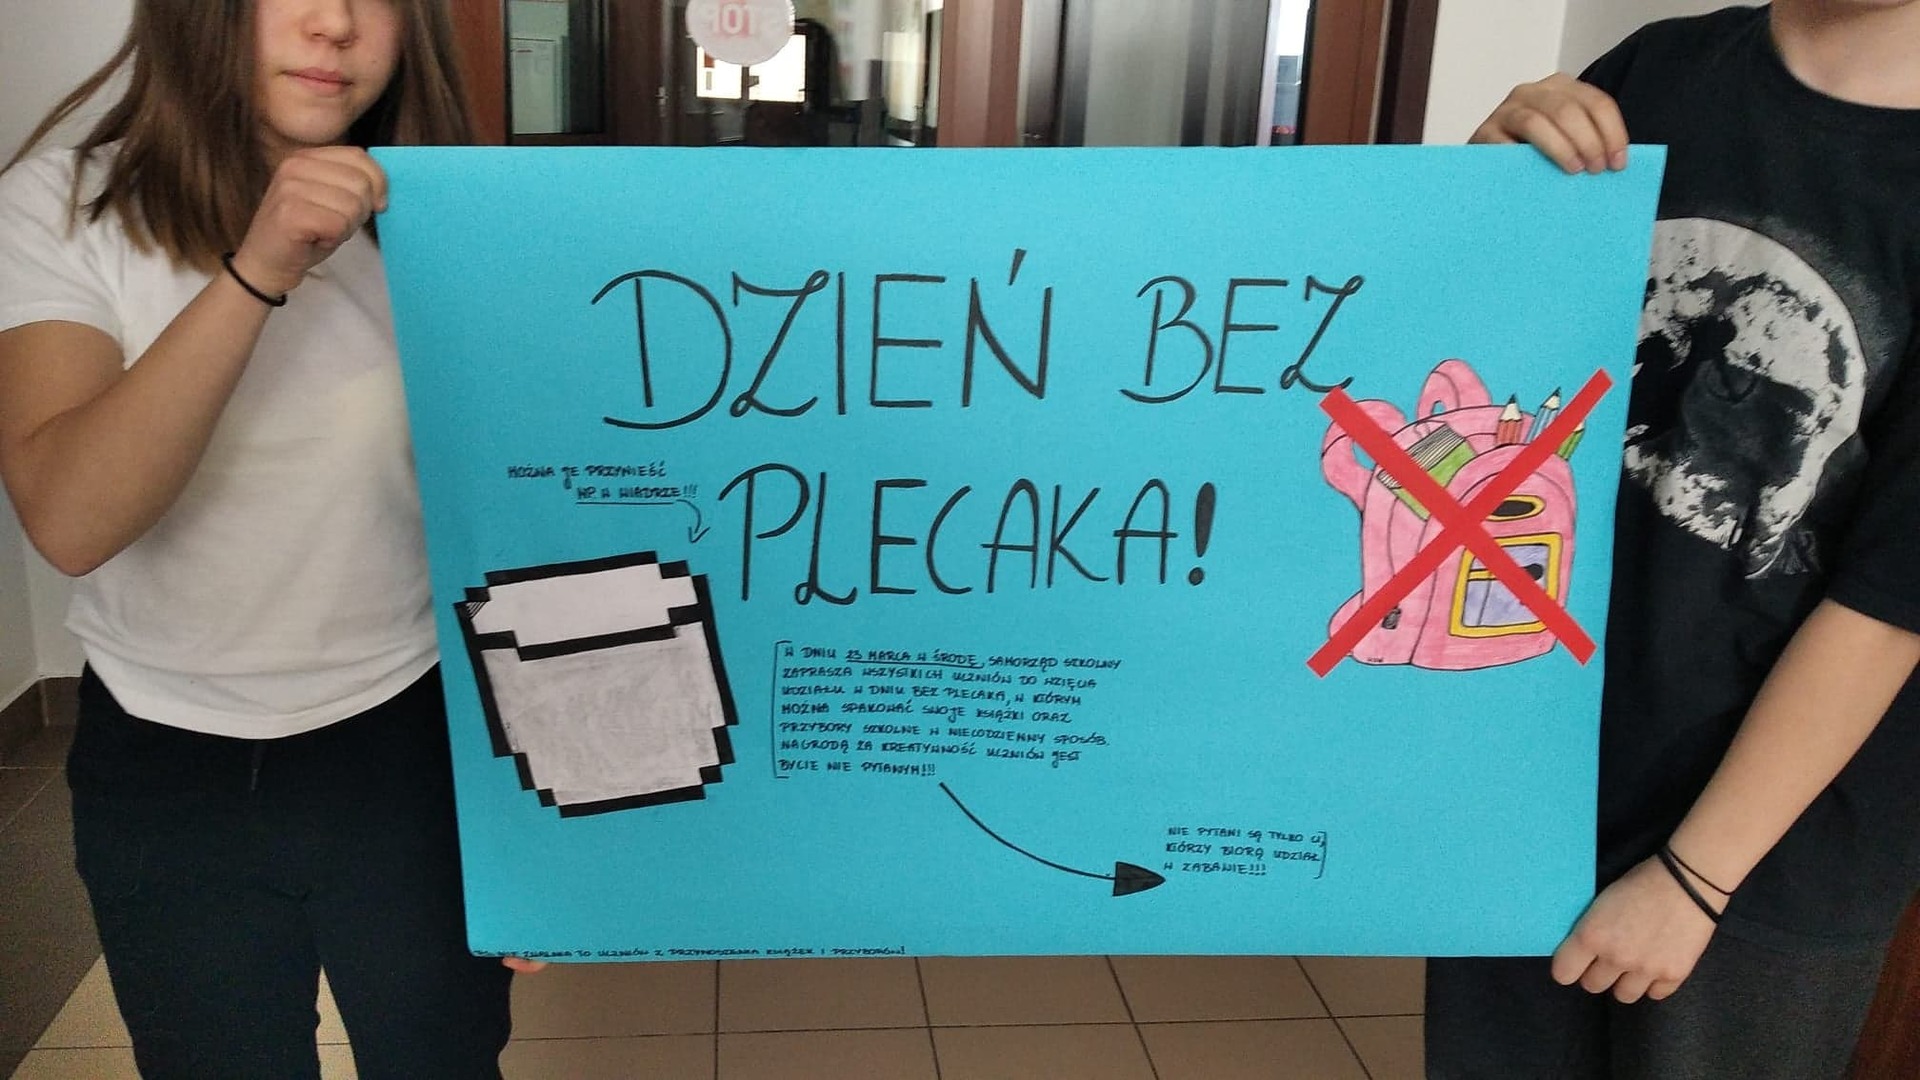 STOP
DZIEŃ BEZ
MOŻNA JE PRZYNIEŚĆ
NP. W WIADRZE!!!
PLECAKA!
W DNIU 23 MARCA W ŚRODĘ, SAMORZĄD SZKOLNY
ZAPRASZA WSZYSTKICH UCZNIÓW DO WZIĘCIA
UDZIAŁU W DNIU BEZ PLECAKA, W KTÓRYM
MOŻNA SPAKOWAĆ SWOJE KSIĄŻKI ORAZ
PRZYBORY SZKOLNE W NIECODZIENNY SPOSÓB.
NAGRODĄ ZA KREATYWNOŚĆ UCZNIÓW JEST
BYCIE NIE PYTANYM!!!
NIE PYTANI SĄ TYLKO CI,
KTÓRZY BIORĄ UDZIAŁ
W ZABAWIE!!!
NIE ZWALNIA TO UCZNIÓW Z PRZYNOSZENIA KSIĄŻEK I PRZYBORÓW!